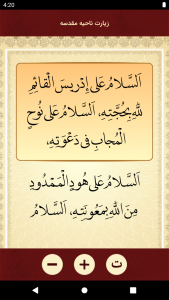 4:20
زیارت ناحیه مقدسه
اَلسَّلامُ عَلى إِدْريسَ الْقائِمِ
لِلّٰهِ بِحُجَّتِهِ، اَلسَّلامُ عَلى نُوحٍ
الْمُجابِ فى دَعْوَتِهِ،
اَلسَّلامُ عَلى هُودٍ الْمَمْدُودِ
مِنَ اللّٰهِ بِمَعُونَتِهِ، اَلسَّلامُ
− + ت